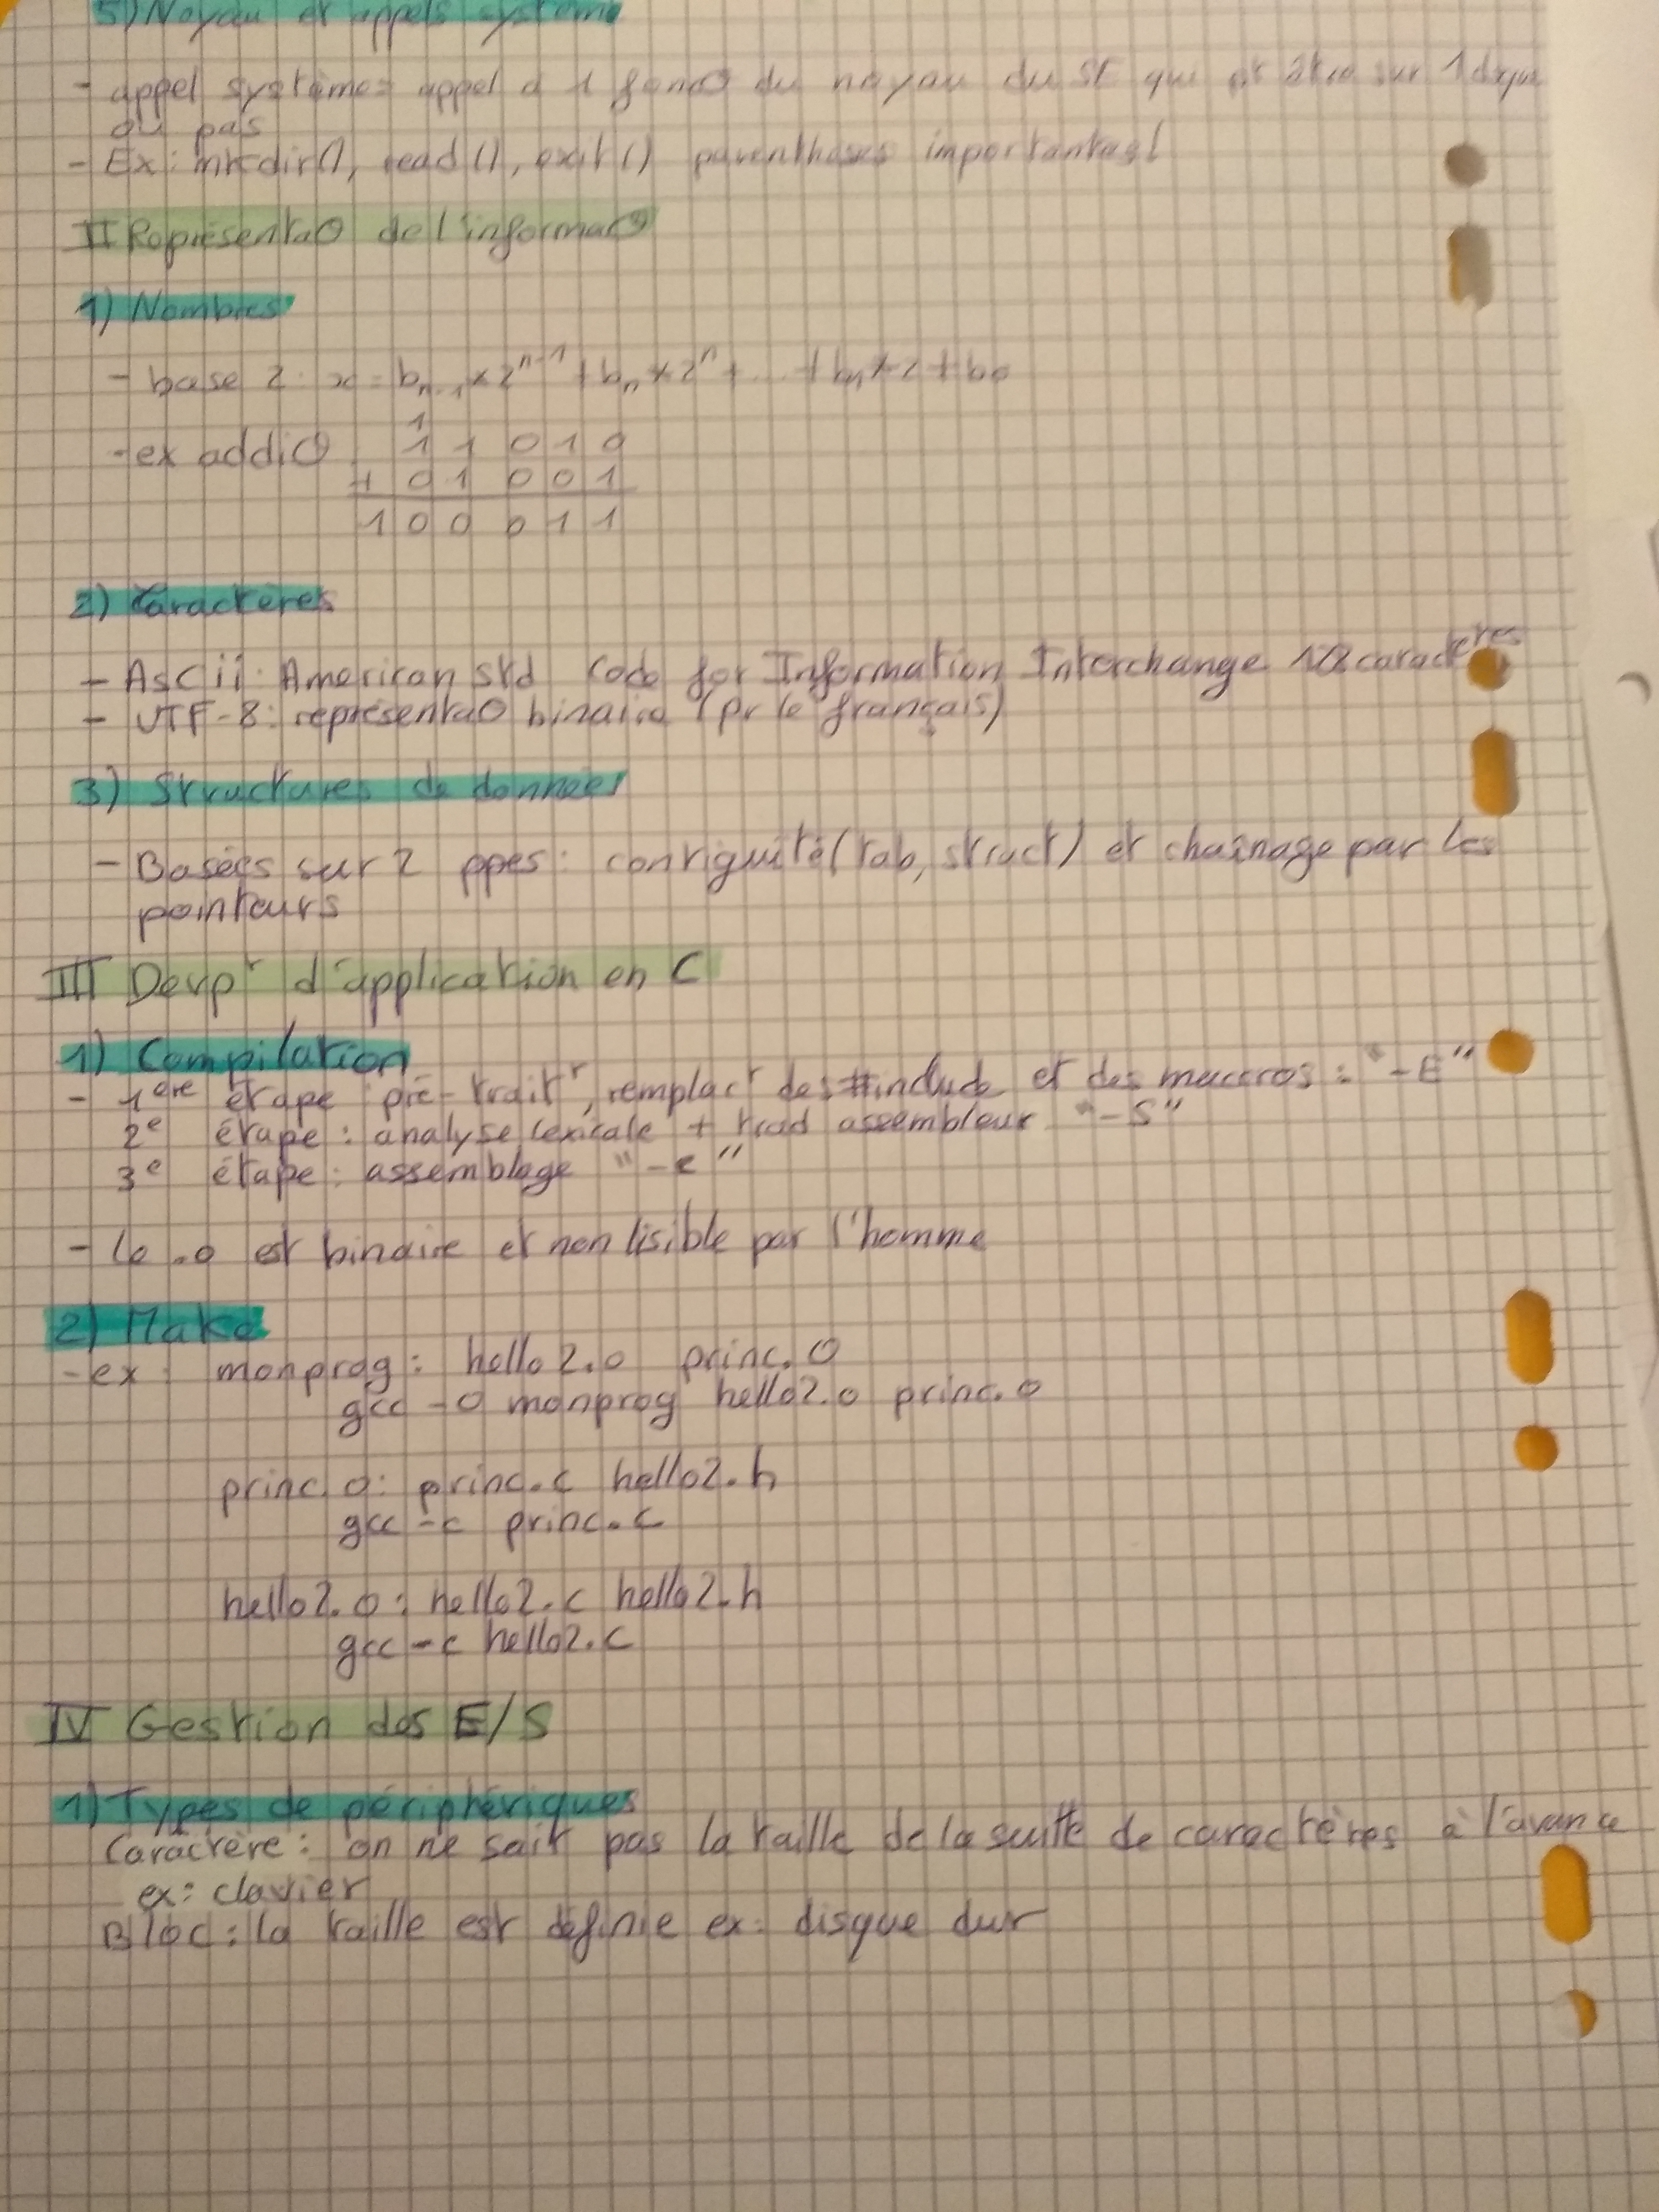 5) Noyau et appels système
- appel système = appel à 1 fonc⊙ du noyau du SE qui pt être sur 1 disque
ou pas
- Ex : mkdir(), read(), exit() parenthèses importantes!
II Représenta⊙ de l'informa⊙
1) Nombres
- base 2 : x = bn-1 × 2^n-1 + bn × 2^n + ... + b1 × 2 + b0
1
- ex addi⊙ 1 1 0 1 0
+ 0 1 0 0 1
1 0 0 0 1 1
2) Caractères
- AsCii : American std Code for Information Interchange 128 caractères
- UTF-8 : représenta⊙ binaire (pr le français)
3) Structures de données
- Basées sur 2 ppes : contiguité (tab, struct) et chaînage par les
pointeurs
III Devpt d'application en C
1) Compilation
- 1ère étape : pré-traitt, remplact des #include et des maccros : "-E"
2e étape : analyse lexicale + trad assembleur "-S"
3e étape : assemblage "-c"
- le .o est binaire et non lisible par l'homme
2) Make
- ex : monprog : hello2.o princ.o
gcc -o monprog hello2.o princ.o
princ.o : princ.c hello2.h
gcc -c princ.c
hello2.o : hello2.c hello2.h
gcc -c hello2.c
IV Gestion des E/S
1) Types de périphériques
Caractère : on ne sait pas la taille de la suite de caractères à l'avance
ex : clavier
Bloc : la taille est définie ex : disque dur